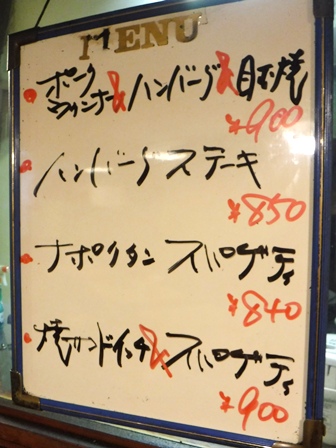 MENU
ポーク
ウィンナー&ハンバーグ&目玉焼
¥900
ハンバーグステーキ
¥850
ナポリタン スパゲティ
¥840
焼サンドイッチ&スパゲティ
¥900